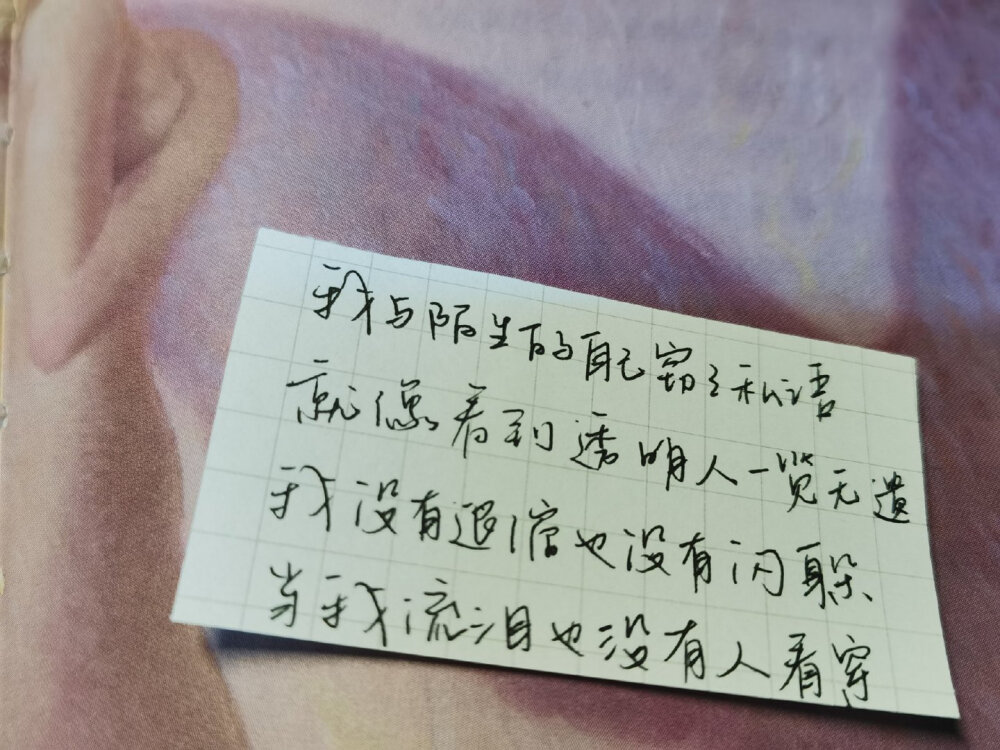 我与陌生的自己窃窃私语
就像看到透明人一览无遗
我没有退缩也没有闪躲
当我流泪也没有人看穿